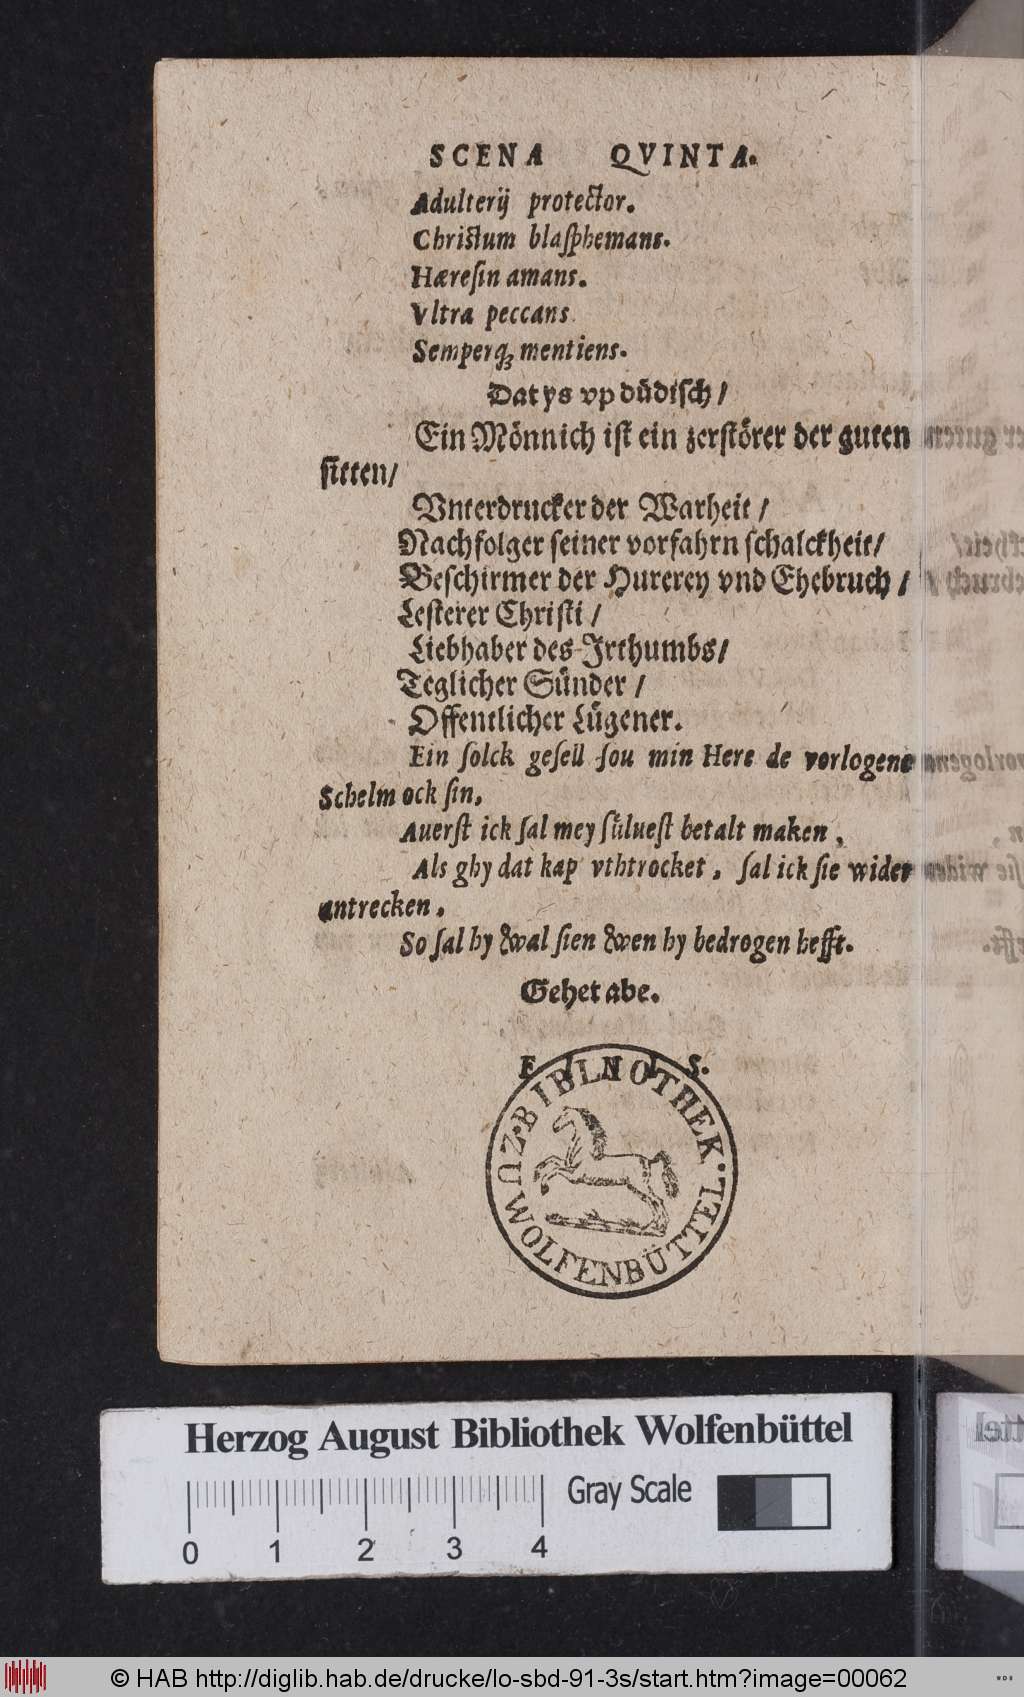 SCENA QVINTA.
Adulterij protector.
Christum blaſphemans.
Hæreſin amans.
Vltra peccans
Semperq́ꝫ mentiens.
Dat ys vp düdiſch /
Ein Mönnich iſt ein zerſtörer der guten
ſitten /
Vnterdrucker der Warheit /
Nachfolger ſeiner vorfahrn ſchalckheit /
Beſchirmer der Hurerey vnd Ehebruch /
Leſterer Chriſti /
Liebhaber des Irthumbs /
Teglicher Sünder /
Offentlicher Lügener.
Ein ſolck geſell ſou min Here de vorlogene
Schelm ock ſin,
Auerſt ick ſal mey ſülueſt betalt maken,
Als ghy dat kap vthtrocket, ſal ick ſie wider
antrecken,
So ſal hy wal ſien wen hy bedrogen hefft.
Gehet abe.
F I N I S.
BIBLIOTHEK
ZU WOLFENBÜTTEL
Herzog August Bibliothek Wolfenbüttel
Gray Scale
0 1 2 3 4
© HAB http://diglib.hab.de/drucke/lo-sbd-91-3s/start.htm?image=00062